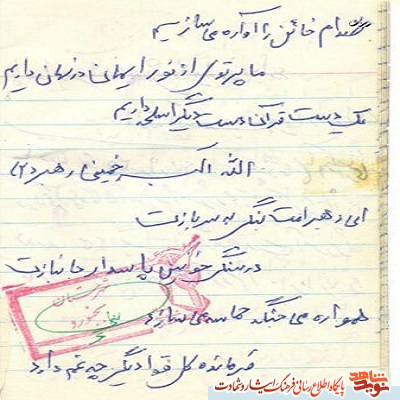 صدام خائن را آواره می سازیم
ما پرتوی از نور ایمانی در زمان داریم
یک دست قرآن دست دیگر اسلحه داریم
الله اکبر خمینی رهبر (۲)
ای رهبر امت لنگر به سربازت
در سنگر خونین پاسدار جانبازت
همواره می جنگد حماسه می سازد
فرمانده کل قوا دیگر چه غم دارد
بجنورد
نوید شاهد
پایگاه اطلاع رسانی فرهنگ ایثار و شهادت